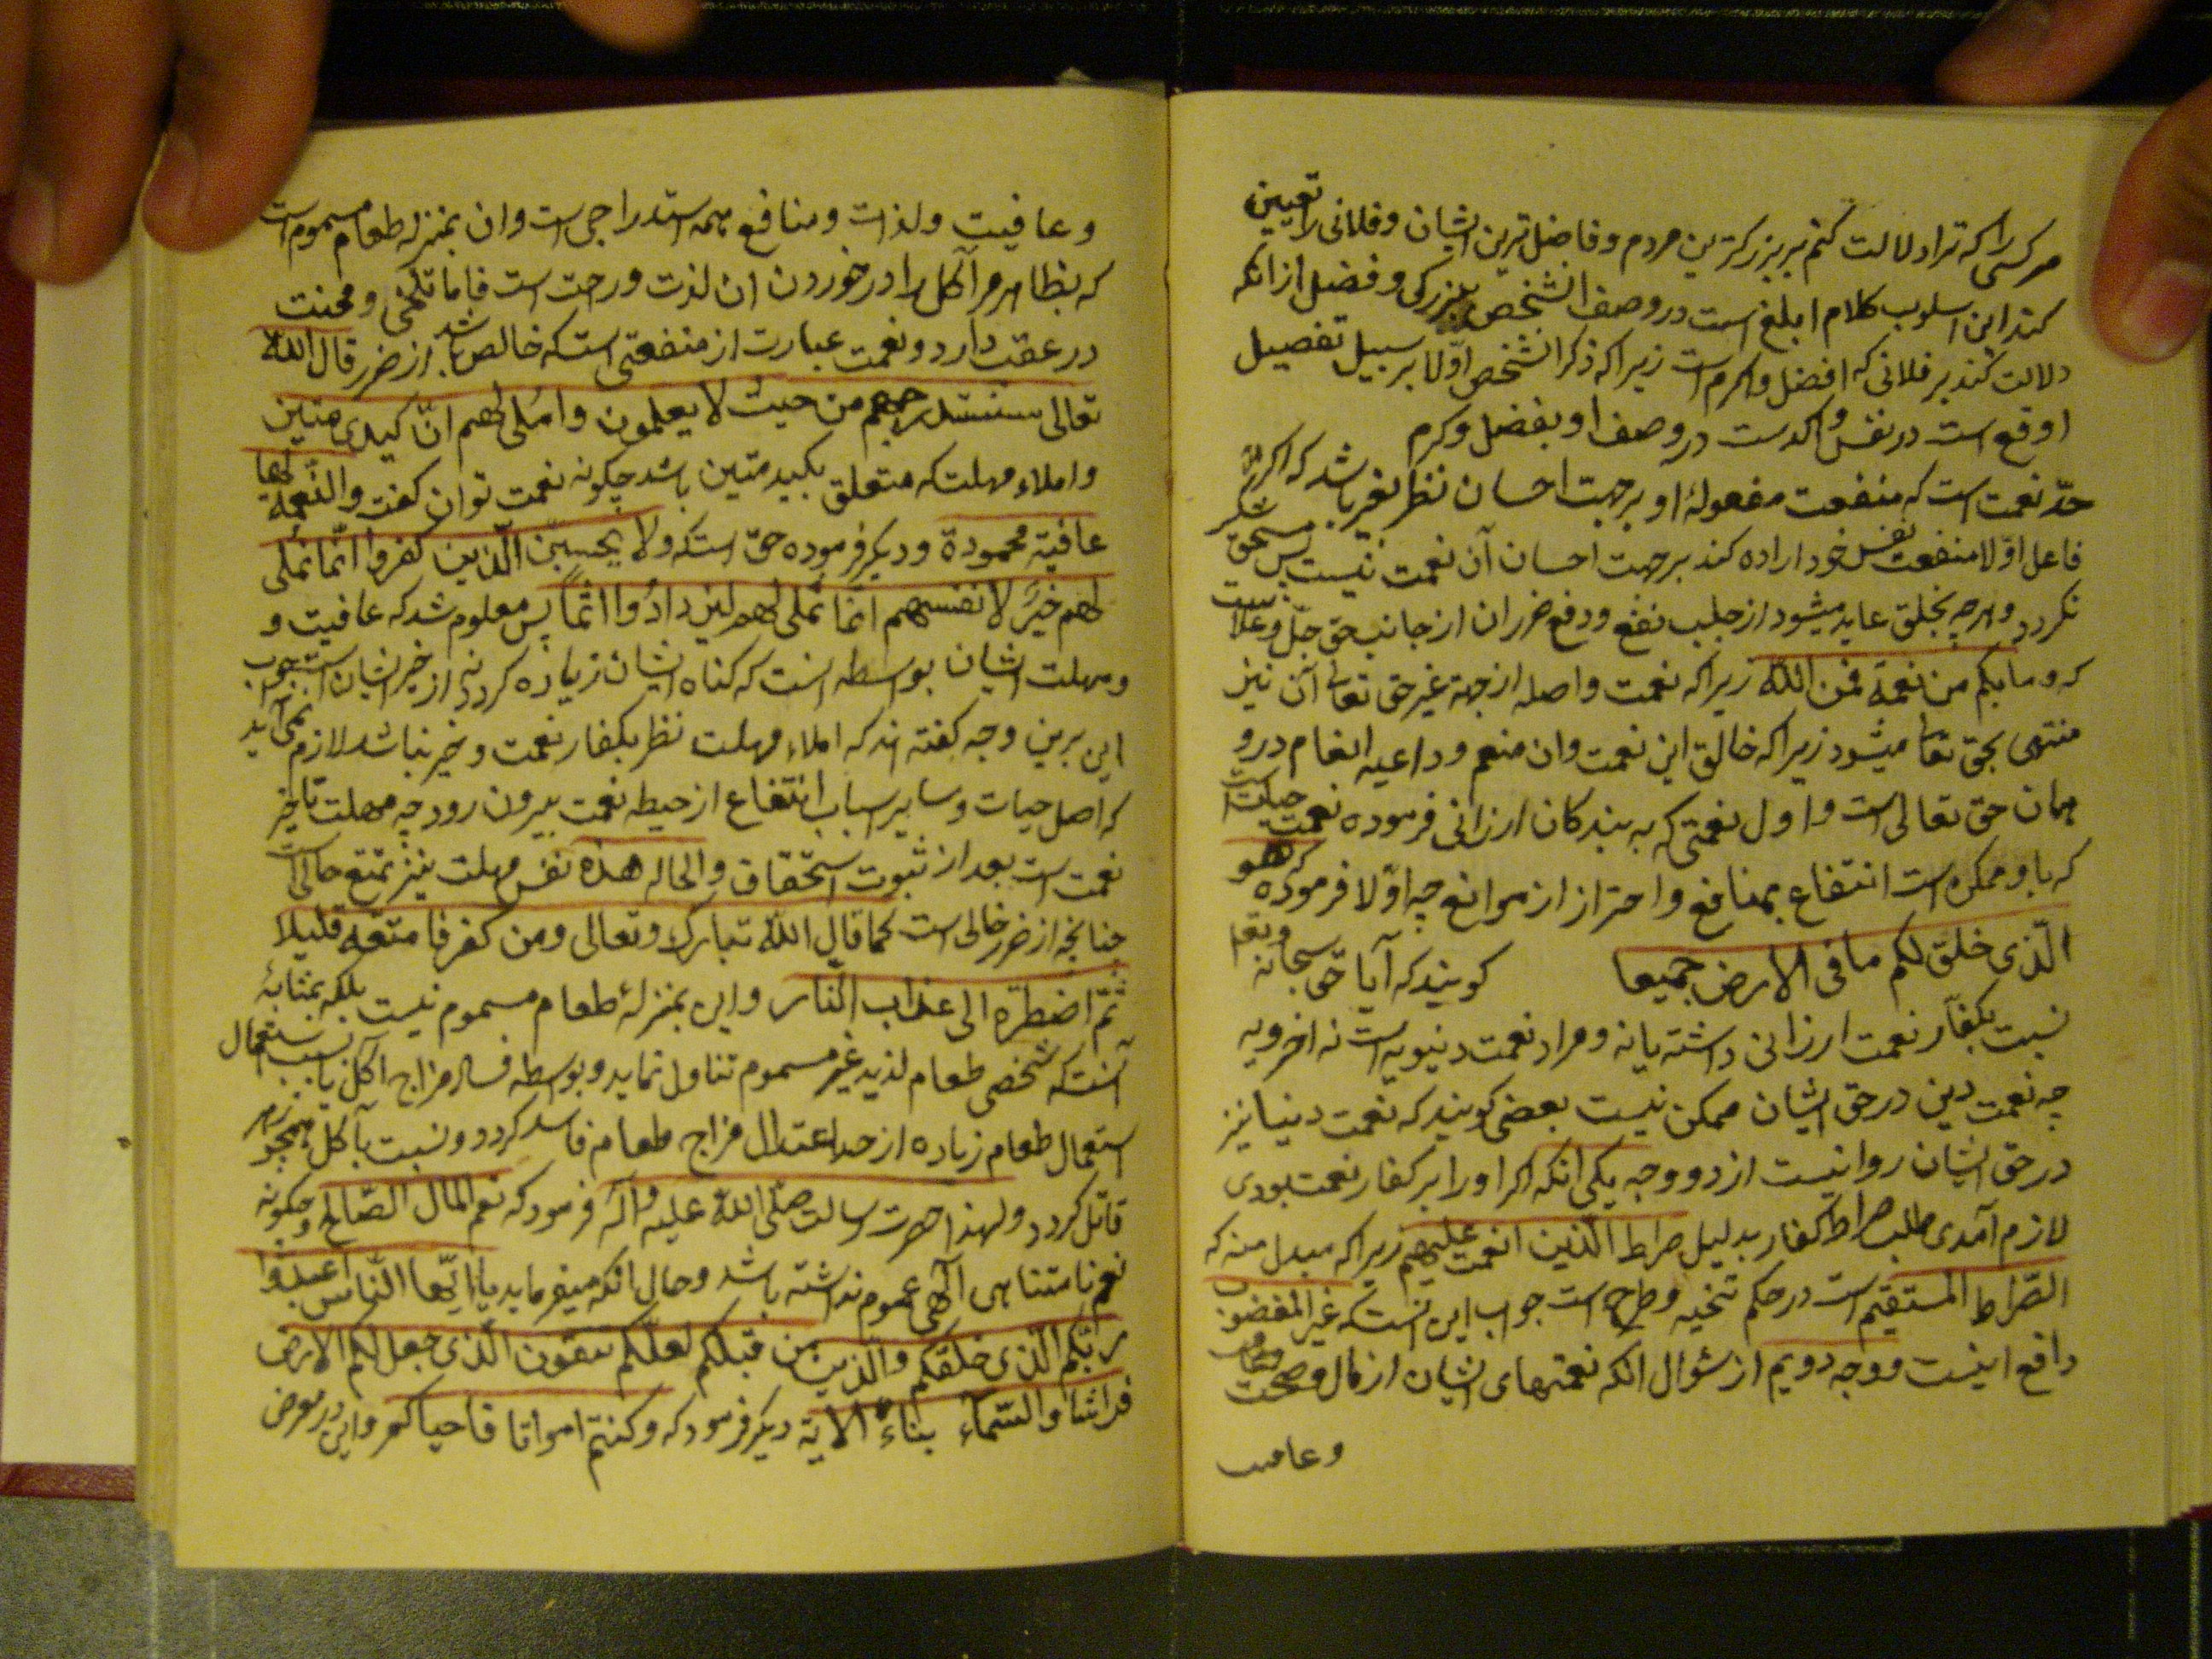 هر کسی را که ترا دلالت کنم بر بزرکترین مردم و فاضل ترین ایشان و فلانی را تعیین
کند این اسلوب کلام ابلغ است در وصف انشخص ببزرکی و فضل از انکه
دلالت کند بر فلانی که افضل و اکرم است زیرا که ذکر انشخص اوّلا بر سبیل تفصیل
اوقع است در نفس و اکدست در وصف او بفضل و کرم
حدّ نعمت است که منفعت مفعولهٔ او بر جهت احسان نظر بغیر باشد که اکر
فاعل اوّلا منفعت نفس خود اراده کند بر جهت احسان آن نعمت نیست پس مستحق شکر
نکردد و هر چه بخلق عاید میشود از جلب نفع و دفع ضرر ان از جانب حق جلّ و علاست
که وما بکم من نعمة فمن الله زیرا که نعمت واصله از جهة غیر حق تعالی آن نیز
منتهی بحق تعا میشود زیرا که خالق این نعمت و ان منعم و داعیه انعام در و
همان حق تعالی است و اول نعمتی که به بندکان ارزانی فرموده نعمت حیات است
که با و ممکن است انتفاع بمنافع و احتراز از موانع چه اوّلا فرموده که هو
الّذی خلق لکم ما فی الارض جمیعا کویند که آیا حق سبحانه و تعا
نسبت بکفّار نعمت ارزانی داشته یا نه و مراد نعمت دنیویه است نه اخرویه
چه نعمت دین در حق ایشان ممکن نیست بعضی کویند که نعمت دنیا نیز
در حق ایشان روا نیست از دو وجه یکی انکه اکر او را بر کفار نعمت بودی
لازم آمدی طلب صراط کفار بدلیل صراط الّذین انعمت علیهم زیرا که مبدل منه که
الصّراط المستقیم است در حکم تنحیه و طرح است جواب این انست که غیر المغضوب
دافع اینست و وجه دویم از سؤال انکه نعمتهای ایشان از مال و صحت
و عافیت
و عافیت و لذات و منافع همه استدراجی است و ان بمنزله طعام مسموم است
که بظاهر مر آکل را در خوردن ان لذت و رحت است فاما تلخی و محنت
در عقب دارد و نعمت عبارت از منفعتی است که خالص باشد از ضرر قال الله
تعالی سنستدرجهم من حیث لا یعلمون و املی لهم انّ کیدی متین
و املاء مهلت که متعلق بکید متین باشد چکونه نعمت توان کفت و النّعمة لها
عافیة محمودة و دیکر فرموده حق است که ولا یحسبنّ الّذین کفروا انّما نملی
لهم خیرٌ لانفسهم انما نملی لهم لیزدادوا اثماً پس معلوم شد که عافیت و
و مهلت ایشان بواسطه انست که کناه ایشان زیاده کردد نه از خیر ایشان است جواب
این برین وجه کفته اند که املاء و مهلت نظر بکفار نعمت و خیر نباشد لازم نمی آید
که اصل حیات و سایر اسباب انتفاع از حیطه نعمت بیرون رود چه مهلت تاخیر
نعمت است بعد از ثبوت استحقاق و الحاله هذه نفس مهلت نیز تمتع حالی است
چنانچه از ضرر خالی است کما قال الله تبارک و تعالی ومن کفر فامتعه قلیلا
ثمّ اضطرّه الی عذاب النّار و این بمنزلهٔ طعام مسموم نیست بلکه بمثابهٔ
آنست که شخصی طعام لذید غیر مسموم تناول نماید و بواسطه فساد مزاج اکل یا بسبب استعمال
استعمال طعام زیاده از حد اعتدال مزاج طعام فاسد کردد و نسبت بآکل همچو زهر
قاتل کردد و لهذا حضرت رسالت صلی الله علیه و آله فرمود که نعم المال الصّالح و چکونه
نعم نامتناهی الهی عموم نداشته باشد و حال انکه میفرماید یا ایّها النّاس اعبدوا
ربّکم الّذی خلقکم و الّذین من قبلکم لعلّکم تتقون الّذی جعل لکم الارض
فراشا و السّماء بناءً الایة دیکر فرمود که و کنتم امواتا فاحیاکم و این در معرض